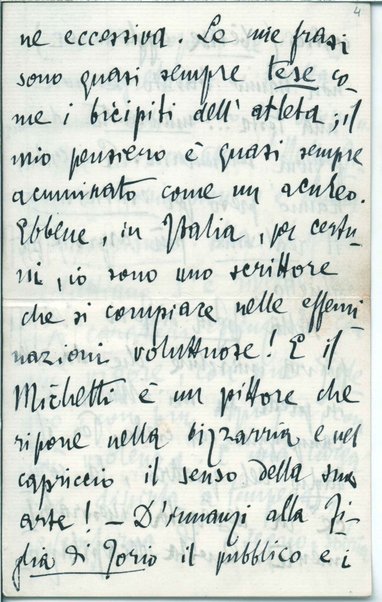 4
ne eccessiva. Le mie frasi
sono quasi sempre tese co-
me i bicipiti dell'atleta; il
mio pensiero è quasi sempre
acuminato come un aculeo.
Ebbene, in Italia, per certu-
ni, io sono uno scrittore
che si compiace nelle effemi
nazioni voluttuose! E il
Michetti è un pittore che
ripone nella bizzarria e nel
capriccio il senso della sua
arte! – D'innanzi alla Fi-
glia di Jorio il pubblico e i